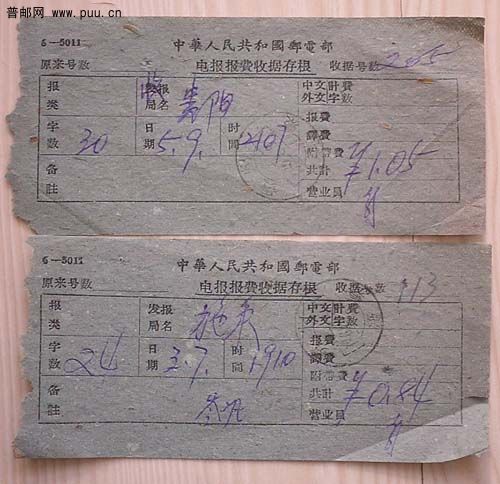 普邮网 www.puu.cn
6—5011
中華人民共和國郵電部
原来号数 电报报費收据存根 收据号数
报类 发报局名 贵阳 中文計費 外文字数
字数 30 日期 5.9. 时間 2107 报费 譯費 附带費 共計 ¥1.05
备註 营业員
6—5011
中華人民共和國郵電部
原来号数 电报报費收据存根 收据号数 113
报类 发报局名 施秉 中文計費 外文字数
字数 24 日期 3.7. 时間 1910 报費 譯費 附带費 共計 ¥0.84
备註 营业員